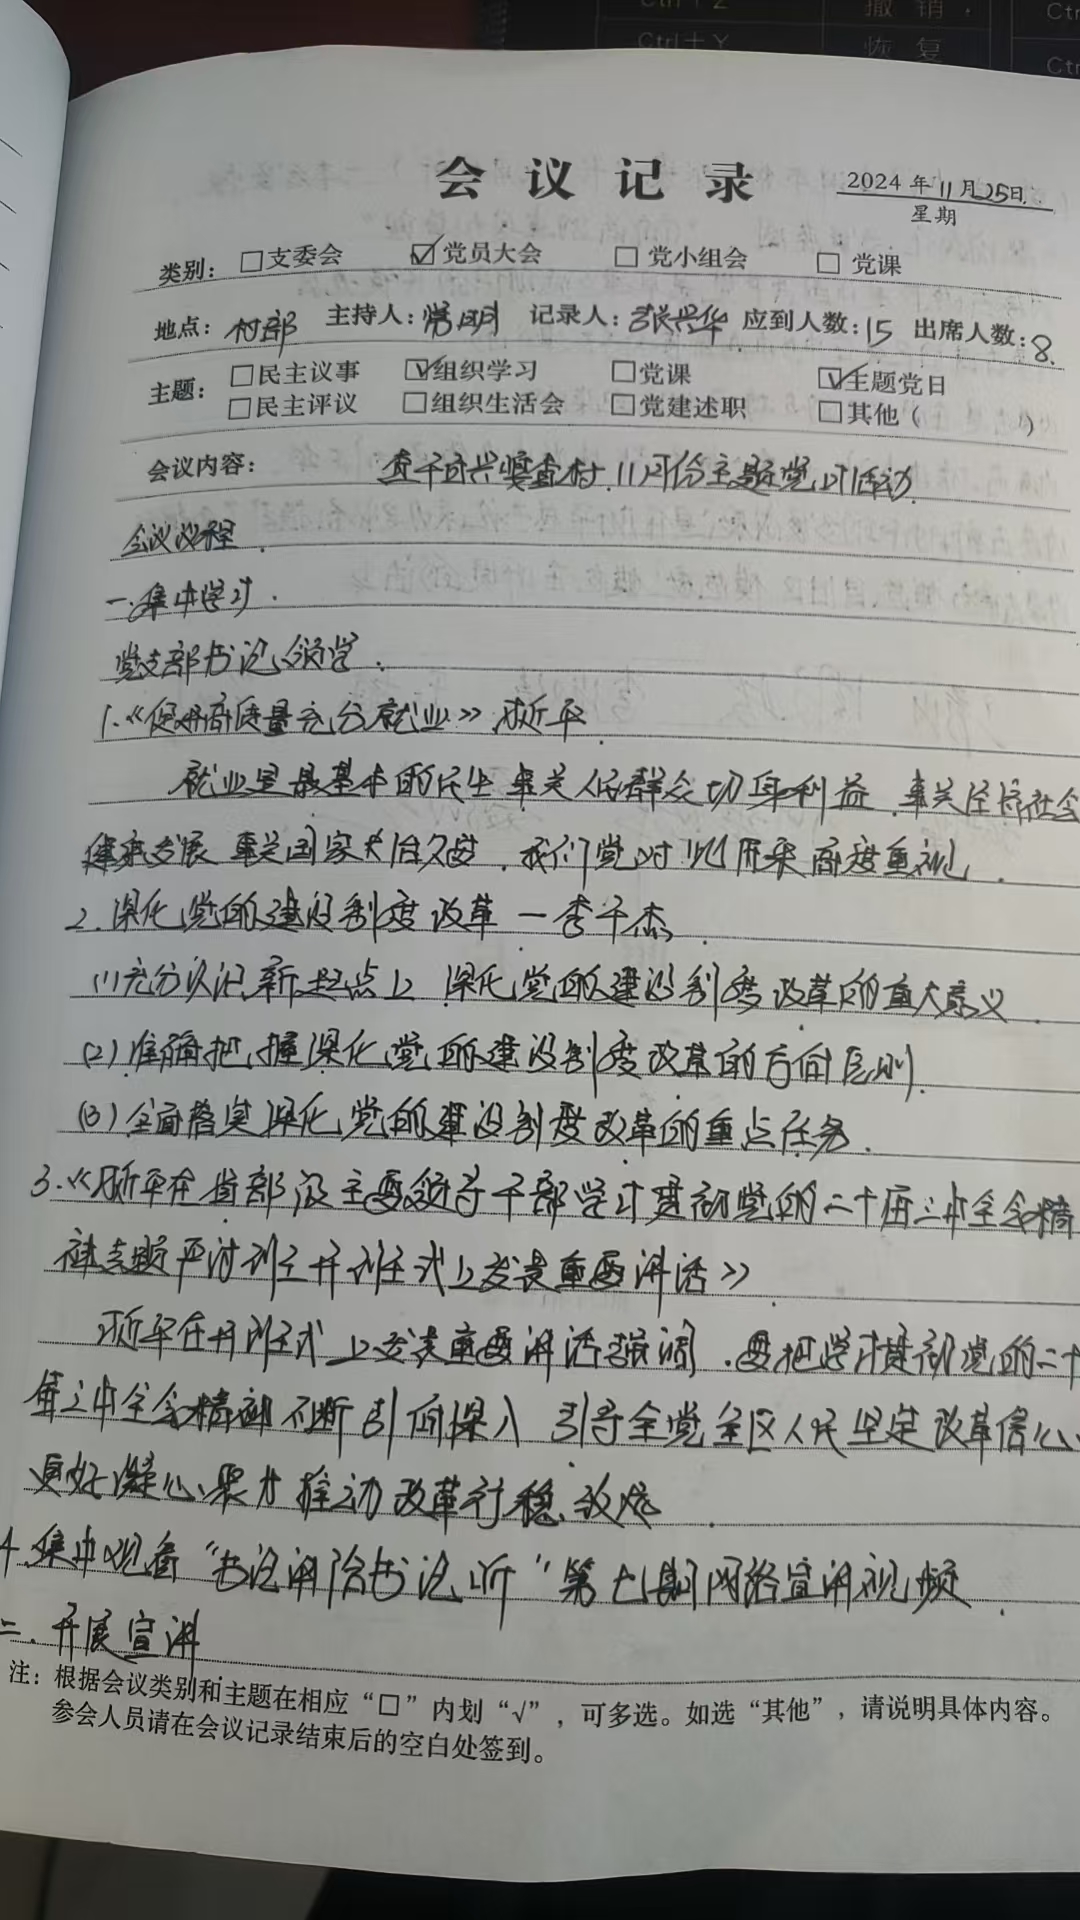 Ctrl+Z 撤销, Ctr
Ctrl+Y 恢复 Ctr
会议记录
2024年11月25日
星期
类别: □支委会 ☑党员大会 □党小组会 □党课
地点: 村部 主持人: 明 记录人: 张兴华 应到人数: 15 出席人数: 8
主题: □民主议事 ☑组织学习 □党课 ☑主题党日
□民主评议 □组织生活会 □党建述职 □其他( )
会议内容: 查干 村11月份主题党日活动
会议议程
一、集中学习.
党支部书记领学.
1.《促进高质量充分就业》习近平
就业是最基本的民生 事关人民群众切身利益 事关经济社会
健康发展 事关国家长治久安,我们党对此历来高度重视.
2.深化党的建设制度改革—李干杰.
(1)充分认识新起点上 深化党的建设制度改革的重大意义.
(2)准确把握深化党的建设制度改革的方向原则.
(3)全面落实深化党的建设制度改革的重点任务.
3.《习近平在省部级主要领导干部学习贯彻党的二十届三中全会精
神专题研讨班开班式上发表重要讲话》
习近平在开班式上发表重要讲话强调,要把学习贯彻党的二十
届三中全会精神不断引向深入 引导全党全国人民坚定改革信心、
更好凝心聚力推动改革行稳致远.
4.集中观看“书记讲给书记听”第七期网络宣讲视频.
二.开展宣讲
注: 根据会议类别和主题在相应“□”内划“√”,可多选。如选“其他”,请说明具体内容。
参会人员请在会议记录结束后的空白处签到。